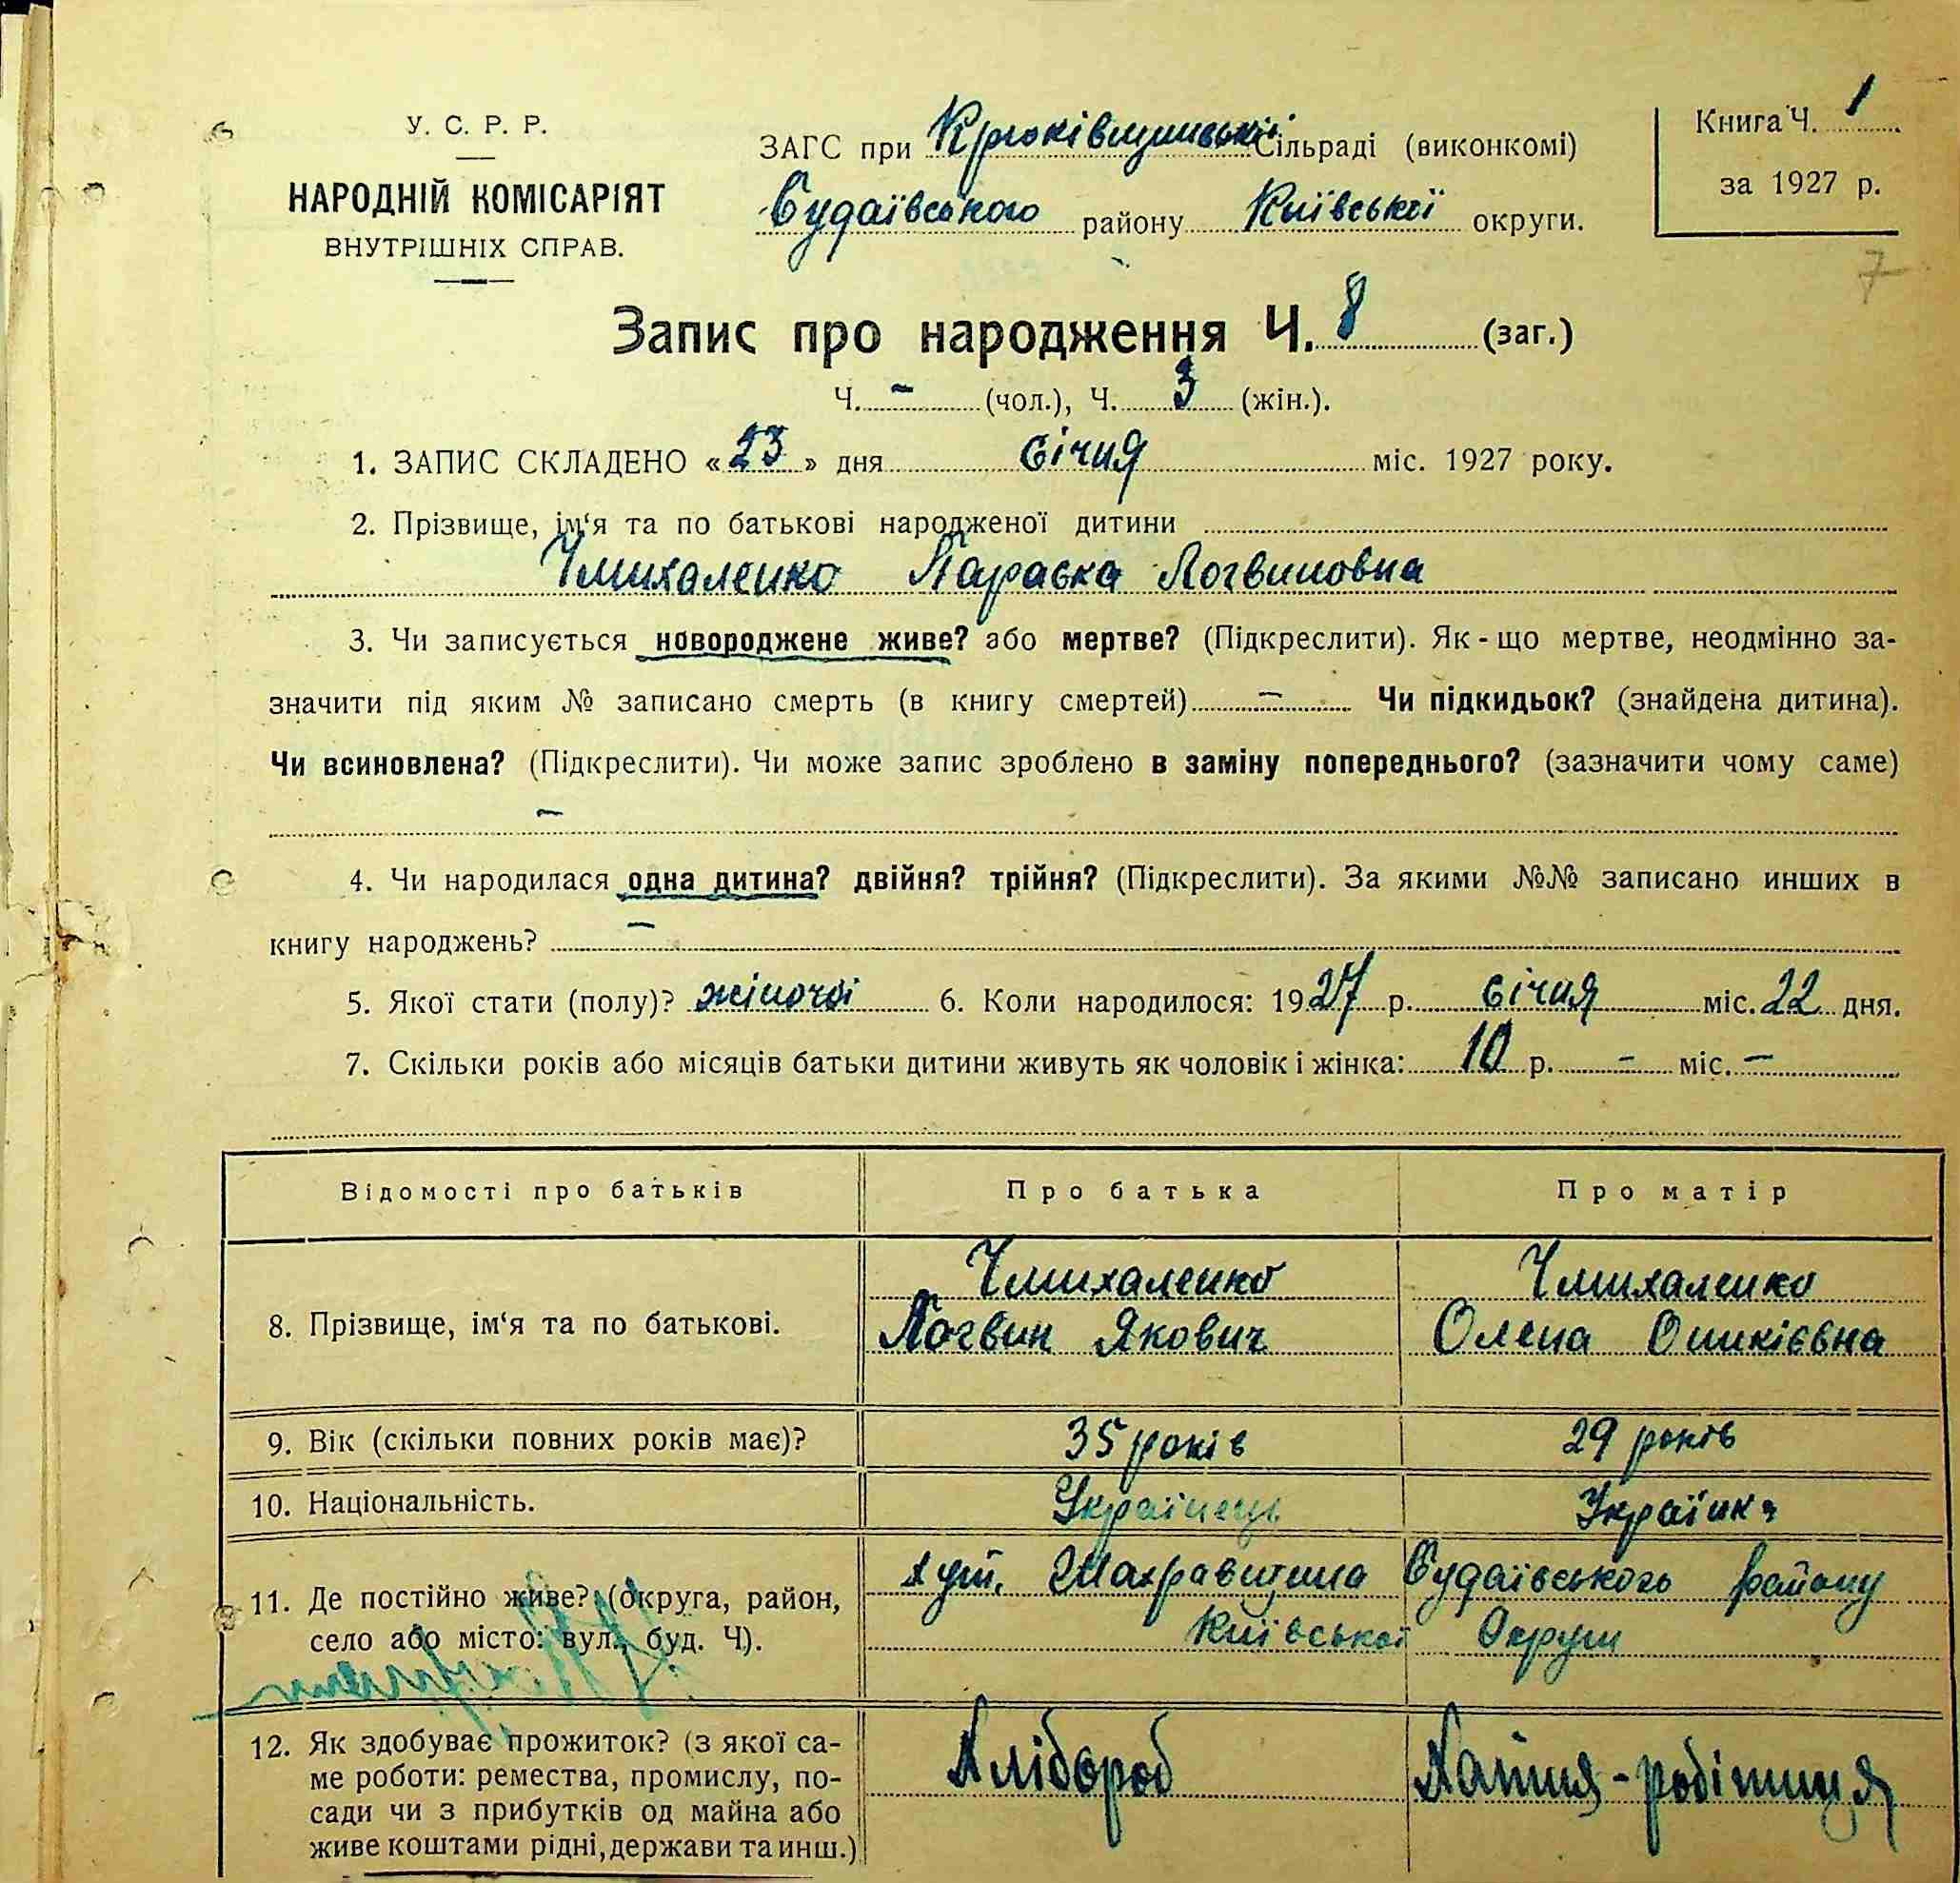 У. С. Р. Р.
НАРОДНІЙ КОМІСАРІЯТ
ВНУТРІШНІХ СПРАВ.
ЗАГС при Крюківщинській Сільраді (виконкомі)
Будаївського району Київської округи.
Книга Ч. 1
за 1927 р.
7
Запис про народження Ч. 8 (заг.)
Ч. - (чол.), Ч. 3 (жін.).
1. ЗАПИС СКЛАДЕНО «23» дня січня міс. 1927 року.
2. Прізвище, ім‘я та по батькові народженої дитини
Чмихаленко Параска Логвиновна
3. Чи записується новороджене живе? або мертве? (Підкреслити). Як-що мертве, неодмінно за-
значити під яким № записано смерть (в книгу смертей) - Чи підкидьок? (знайдена дитина).
Чи всиновлена? (Підкреслити). Чи може запис зроблено в заміну попереднього? (зазначити чому саме)
-
4. Чи народилася одна дитина? двійня? трійня? (Підкреслити). За якими №№ записано инших в
книгу народжень? -
5. Якої стати (полу)? жіночої 6. Коли народилося: 1927 р. січня міс. 22 дня.
7. Скільки років або місяців батьки дитини живуть як чоловік і жінка: 10 р. - міс. -
Відомості про батьків Про батька Про матір
8. Прізвище, ім‘я та по батькові.
Чмихаленко
Логвин Якович
Чмихаленко
Олена Оникієвна
9. Вік (скільки повних років має)? 35 років 29 років
10. Національність. Українець Українка
11. Де постійно живе? (округа, район,
село або місто: вул., буд. Ч).
хут. Шахравщина Будаївського району
Київської Округи
12. Як здобуває прожиток? (з якої са-
ме роботи: ремества, промислу, по-
сади чи з прибутків од майна або
живе коштами рідні, держави та инш.)
Хлібороб
Хатня-робітниця